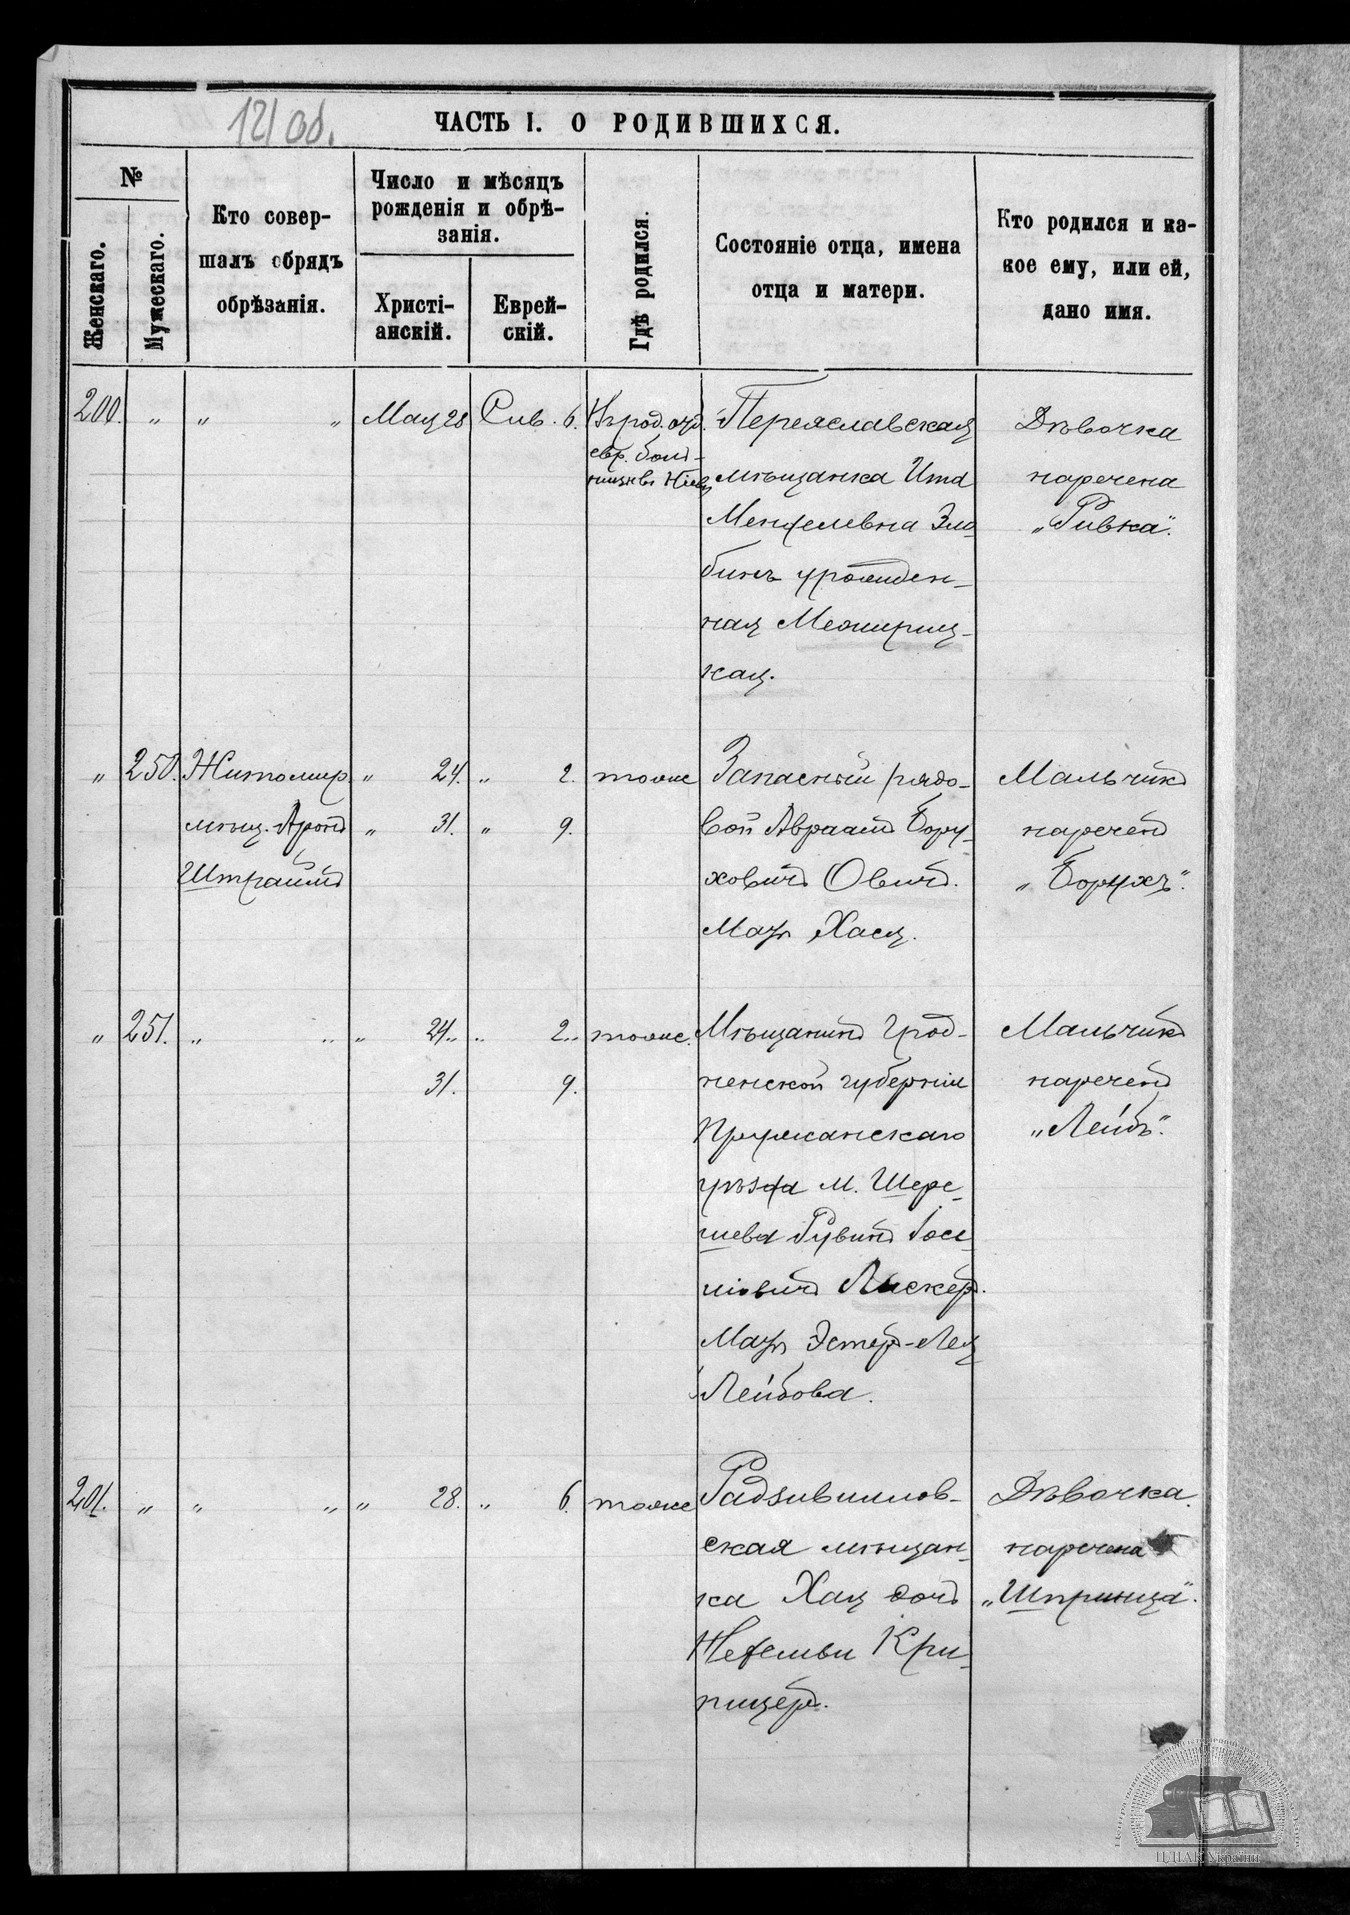 12/об.
ЧАСТЬ I. О РОДИВШИХСЯ.
№
Женскаго.
Мужескаго.
Кто совер-
шалъ обрядъ
обрѣзанія.
Число и мѣсяцъ
рожденія и обрѣ-
занія.
Христі-
анскій.
Еврей-
скій.
Гдѣ родился.
Состояніе отца, имена
отца и матери.
Кто родился и ка-
кое ему, или ей,
дано имя.
200. " " " Мая 28 Сив. 6.
Въ род. отд.
евр. боль-
ницы
Переяславская
мѣщанка Ита
Менделевна Зло-
бинъ урожден-
ная
кая.
Дѣвочка
наречена
„Ривка".
" 250. Житомир.
мѣщ. Аронъ
Штраймъ
" 24. " 2.
" 31. " 9.
тоже
Запасный рядо-
вой Авраамъ Бору-
ховичъ Овичъ.
Мать Хася.
Мальчикъ
нареченъ
„Борухъ".
" 251. " " " 24. " 2.
31. 9.
тоже.
Мѣщанинъ Грод-
ненской губерніи
Пружанскаго
уѣзда м. Шере-
шева Рувинъ Іоси-
повичъ Лискеръ.
Мать Эстеръ-Лея
Лейбова.
Мальчикъ
нареченъ
„Лейбъ".
201. " " " " 28. " 6. тоже
Радзивиллов-
ская мѣщан-
ка Хая дочь
Кри-
пицеръ.
Дѣвочка
наречена
„Шпринца".
ЦДІАК України